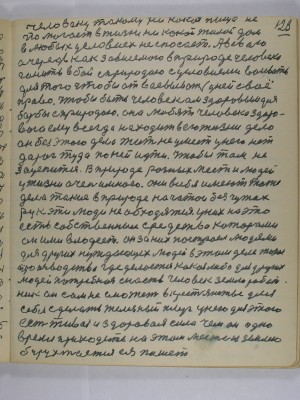 128
человеку такому ни какая пища не
помогает в жизни ни какой жилой дом
в любых условиях не спасает. А ево
очередь как зависимого в природе человека
гонить в бой с природою с условиями воевать
для того чтобы отвоевывать у ней своё
право. Чтобы быть человеком здоровым для
борьбы с природою, она любить человека здоро-
вого ему всегда находит в его жизни дело
он без этого дела жить не умеет у него нет
дороги туда не пойти, чтобы там не
зацепится. В природе разных мест и людей
у жизни очень много. Они в себя имеют тоже
дела такие в природе начатое без чужих
рук эти люди не обходятся у них на это
есть собственные средства которыми
он ими владеет. он за них построил людями
для других нуждающих людей в этом деле только
производства где делается какая либо для других
людей потребная снасть человек земли работ-
ник он сам не сможет в крестьянстве для
себя сделать железный плуг у него для этого
есть живая и здоровая сила чем он одно
время приходится на этом месте на землю
обрушится и пашет